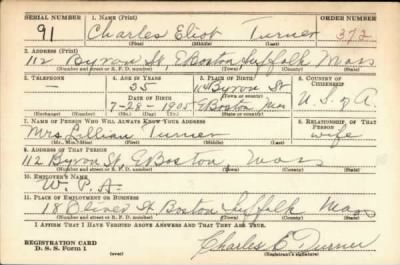 SERIAL NUMBER 1. NAME (Print) ORDER NUMBER
91 Charles Eliot Turner 372
(First) (Middle) (Last)
2. ADDRESS (Print)
112 Byron St, E Boston Suffolk Mass
(Number and street or R. F. D. number) (Town) (County) (State)
3. TELEPHONE 4. AGE IN YEARS 5. PLACE OF BIRTH 6. COUNTRY OF CITIZENSHIP
- 35 112 Byron St
DATE OF BIRTH (Town or county)
7-28-1905 E Boston, Mass U. S. of A.
(Exchange) (Number) (Mo.) (Day) (Yr.) (State or country)
7. NAME OF PERSON WHO WILL ALWAYS KNOW YOUR ADDRESS 8. RELATIONSHIP OF THAT PERSON
Mrs Lillian Turner wife
(Mr., Mrs., Miss) (First) (Middle) (Last)
9. ADDRESS OF THAT PERSON
112 Byron St, E Boston, Mass
(Number and street or R. F. D. number) (Town) (County) (State)
10. EMPLOYER'S NAME
W. P. A.
11. PLACE OF EMPLOYMENT OR BUSINESS
18 Oliver St Boston Suffolk Mass
(Number and street or R. F. D. number) (Town) (County) (State)
I AFFIRM THAT I HAVE VERIFIED ABOVE ANSWERS AND THAT THEY ARE TRUE.
REGISTRATION CARD
D. S. S. Form 1 (over) Charles E Turner
(Registrant's signature)